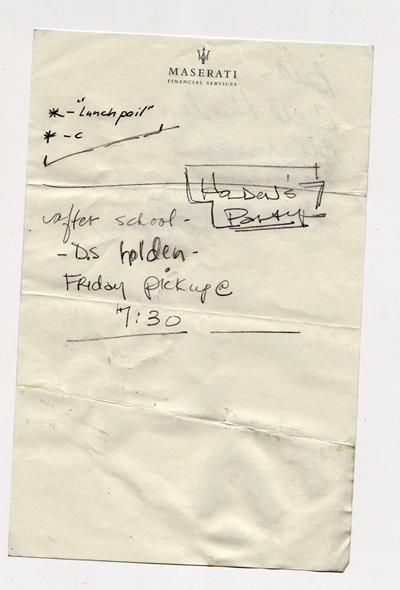 MASERATI
FINANCIAL SERVICES
* - "Lunch pail"
* - C
Holden's
Party
after school -
- D.S holden -
Friday pickup @
7:30